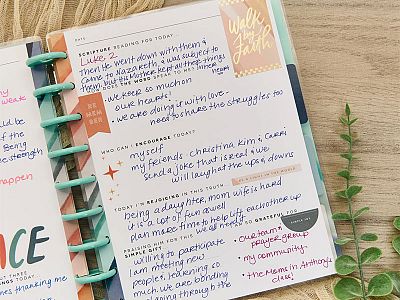 DATE
SCRIPTURE READING FOR TODAY...
Luke 2
Then He went down with them &
came to Nazareth, & was subject to
them, but his Mother kept all these things
in her
heart
DOES THE WORD SPEAK TO ME?
- we keep so much on
our hearts!
- we are doing it with love -
need to share the struggles too
WHO CAN I ENCOURAGE TODAY?
myself
my friends - Christina Kim & Carri
send a joke that is real & we
will laugh at the ups & downs
BE A LIGHT IN THE WORLD
TODAY I'M REJOICING IN THIS TRUTH
being a daughter, mom, wife is hard
it is a lot of fun as well
plan more time to help lift each other up
PRAISING HIM FOR THIS
SIMPLE GIFT
willing to participate
I am meeting new
people & learning so
much, we are bonding
going through the
GRATEFUL FOR
SIMPLE JOY
• our team &
prayer group
• my community
• the Moms in Anthony's
class!
walk
by
Faith
RE
MEM
BER
could be
of the
Being
strength
happen
ICE
THREE
THINGS TODAY...
thanking me